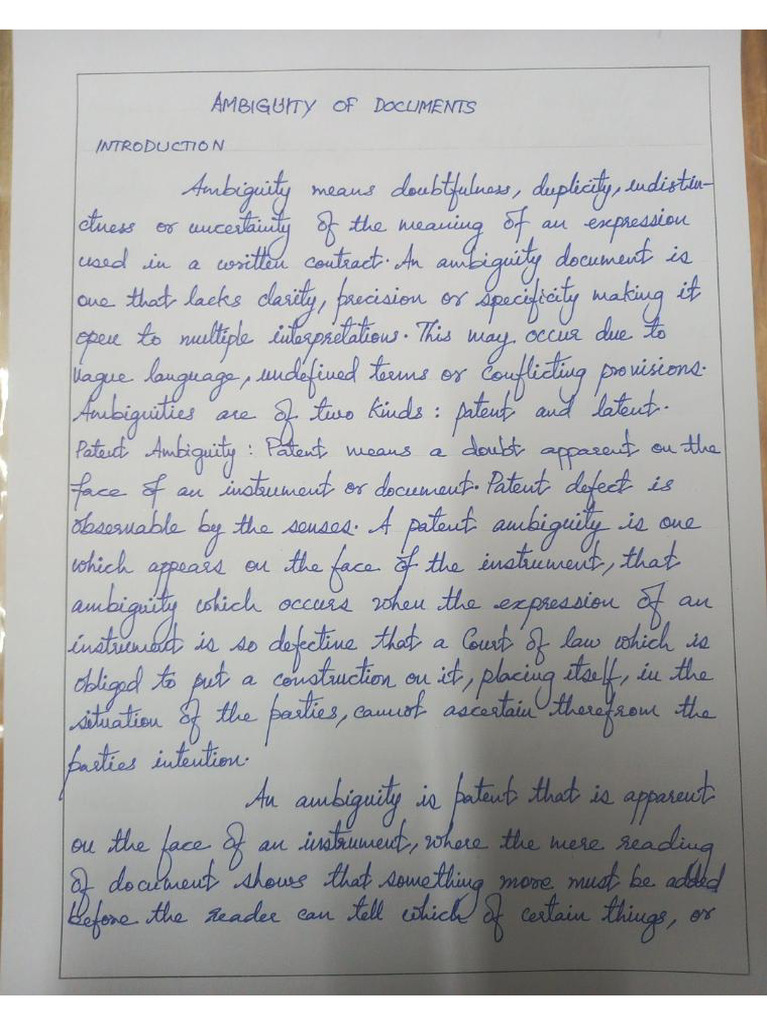 AMBIGUITY OF DOCUMENTS
INTRODUCTION
Ambiguity means doubtfulness, duplicity, indistin-
ctness or uncertainty of the meaning of an expression
used in a written contract. An ambiguity document is
one that lacks clarity, precision or specificity making it
open to multiple interpretations. This may occur due to
vague language, undefined terms or conflicting provisions.
Ambiguities are of two kinds : patent and latent.
Patent Ambiguity : Patent means a doubt apparent on the
face of an instrument or document. Patent defect is
observable by the senses. A patent ambiguity is one
which appears on the face of the instrument, that
ambiguity which occurs when the expression of an
instrument is so defective that a Court of law which is
obliged to put a construction on it, placing itself, in the
situation of the parties, cannot ascertain therefrom the
parties intention.
An ambiguity is patent that is apparent
on the face of an instrument, where the mere reading
of document shows that something more must be added
before the reader can tell which of certain things, or